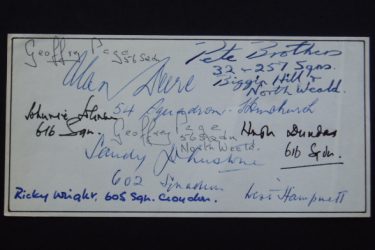 Geoffrey Page
56 Sqdn
Pete Brothers
32 - 257 Sqns.
Biggin Hill &
North Weald.
Alan Deere
54 Squadron. Hornchurch
Johnnie Johnson
616 Sqn.
Geoffrey Page
56 Sqdn
North Weald.
Hugh Dundas
616 Sqdn.
Sandy Johnstone
602 Squadron
West Hampnett
Ricky Wright. 605 Sqn. Croydon.